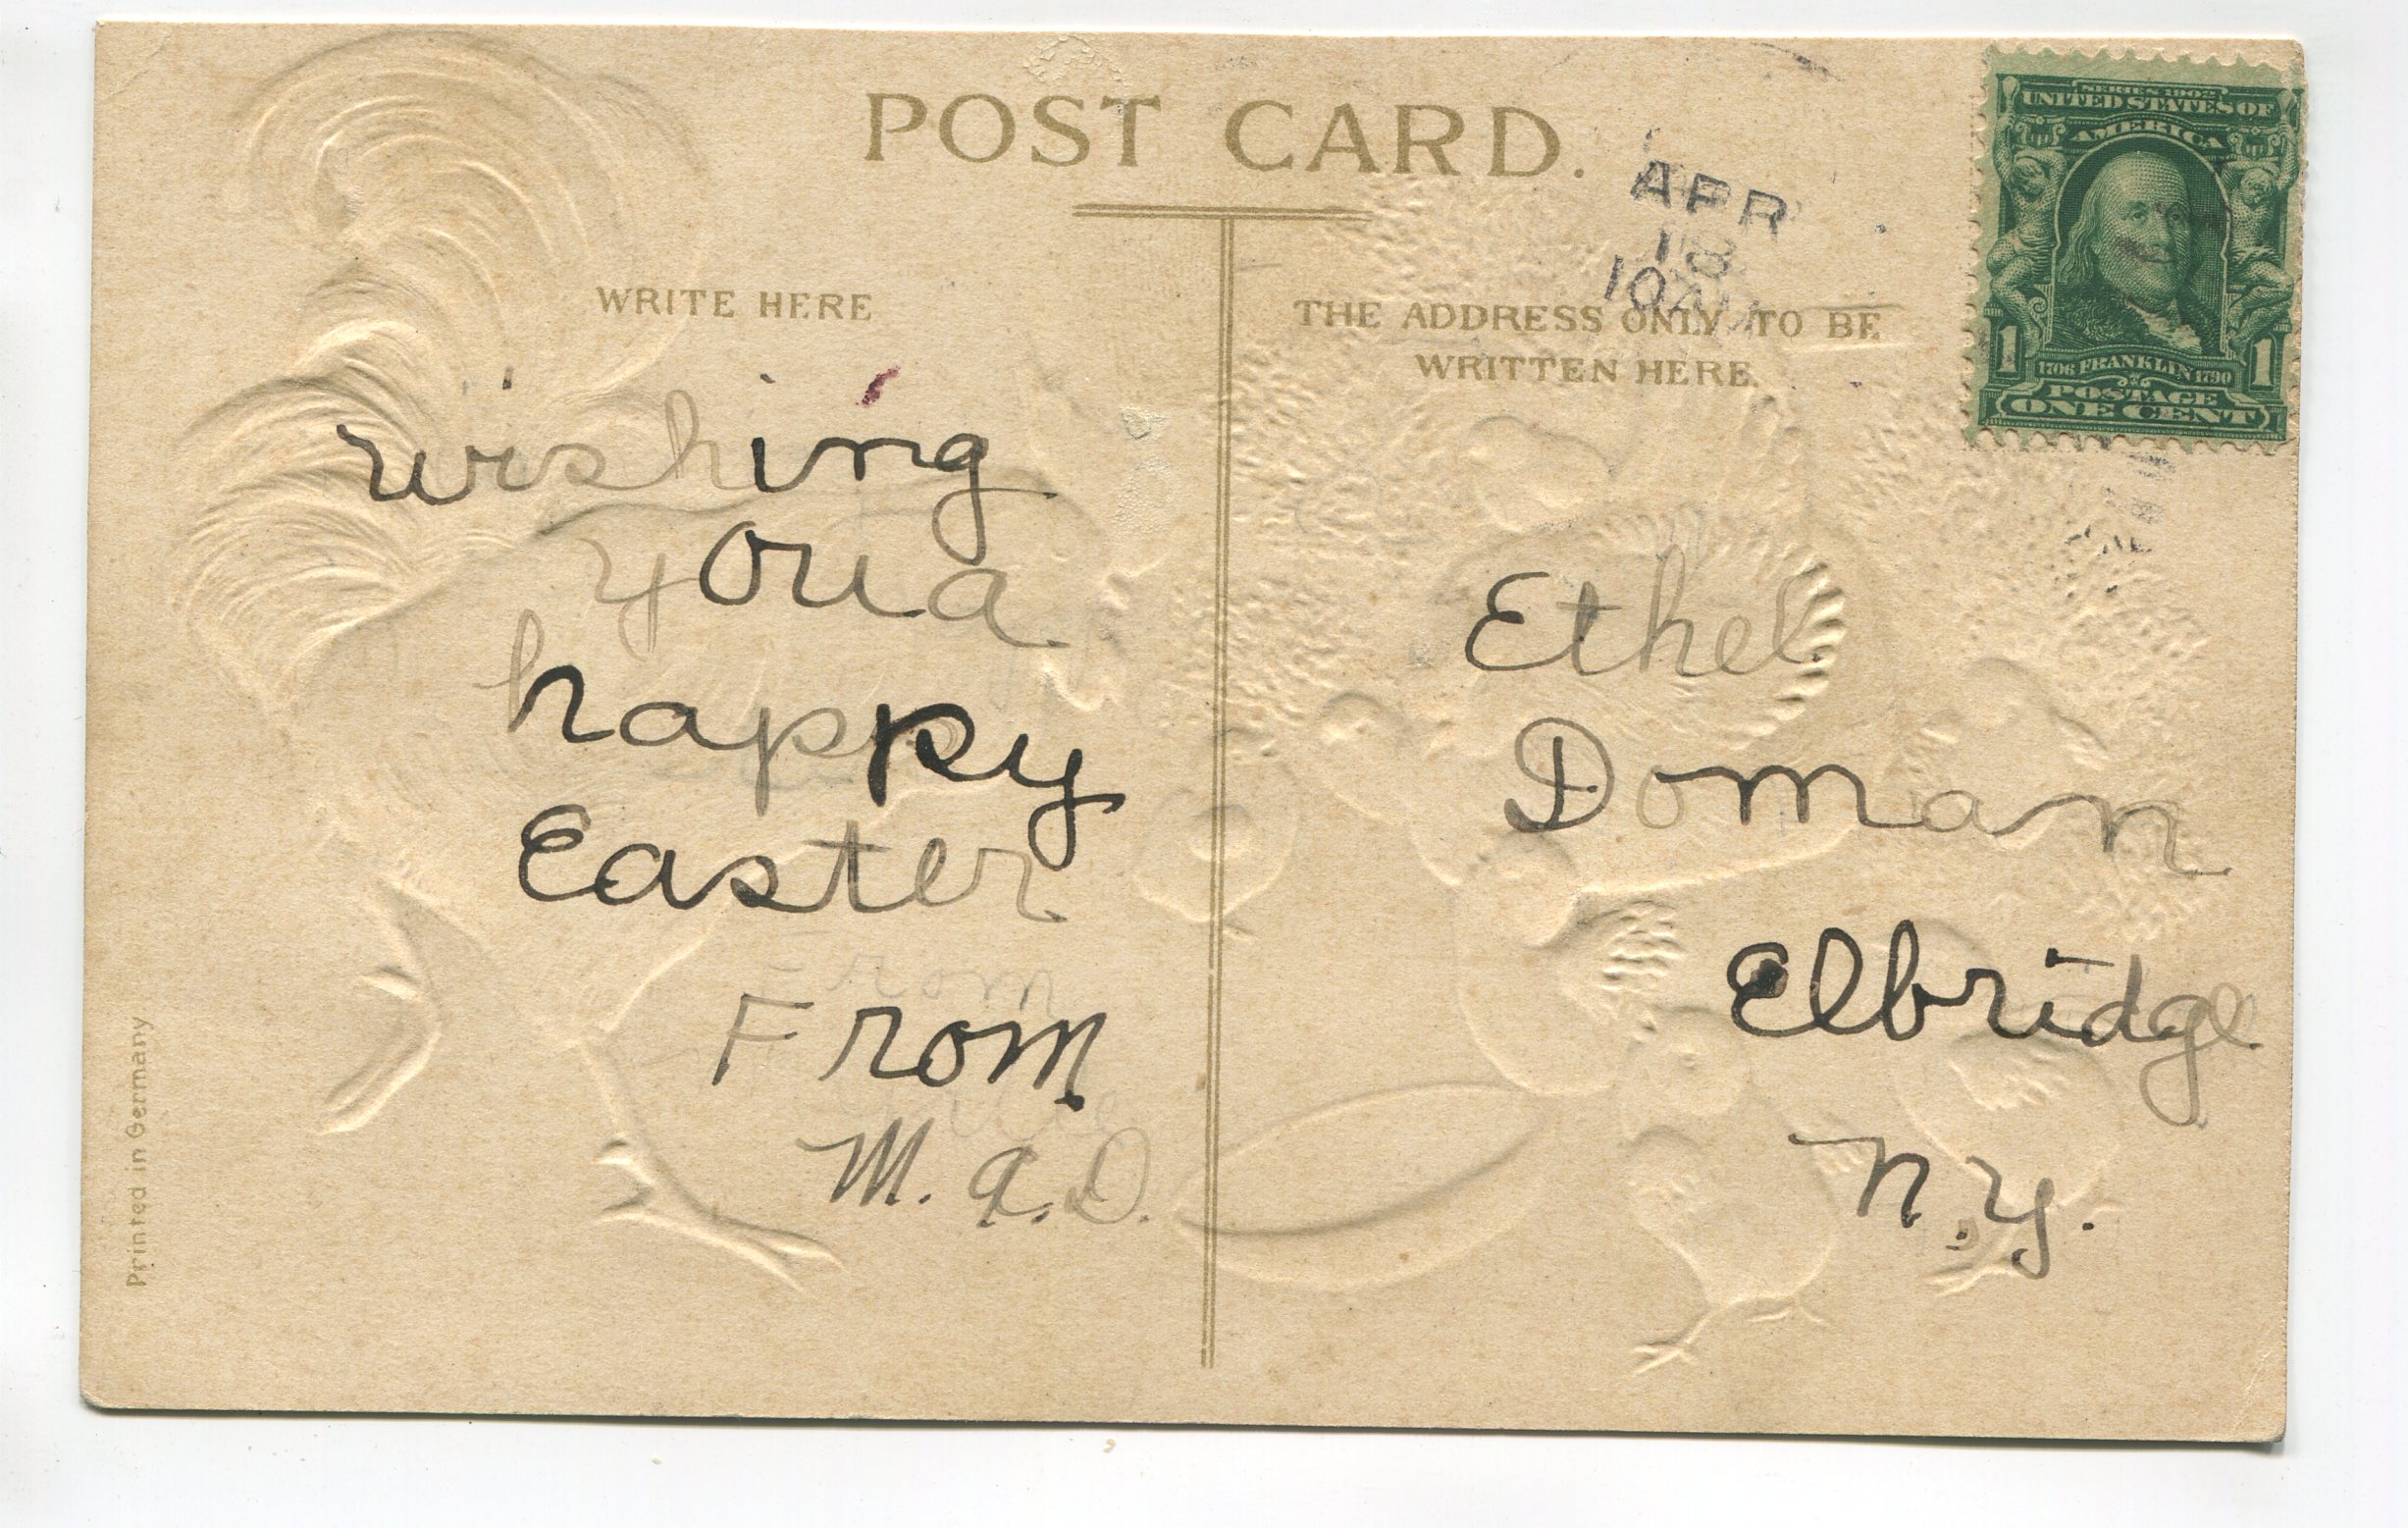 POST CARD.
WRITE HERE
THE ADDRESS ONLY TO BE
WRITTEN HERE.
APR
18
10 AM
SERIES 1902
UNITED STATES OF
AMERICA
1 1706 FRANKLIN 1790 1
POSTAGE
ONE CENT
wishing
you a
happy
Easter
From
From
M. A. D.
Ethel
Doman
Elbridge
N. Y.
Printed in Germany